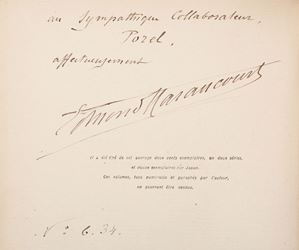 au sympathique Collaborateur,
Porel,
affectueusement
Edmond Haraucourt
Il a été tiré de cet ouvrage deux cents exemplaires, en deux séries,
et douze exemplaires sur Japon.
Ces volumes, tous numérotés et paraphés par l'auteur,
ne pourront être vendus.
N° 6. 34.